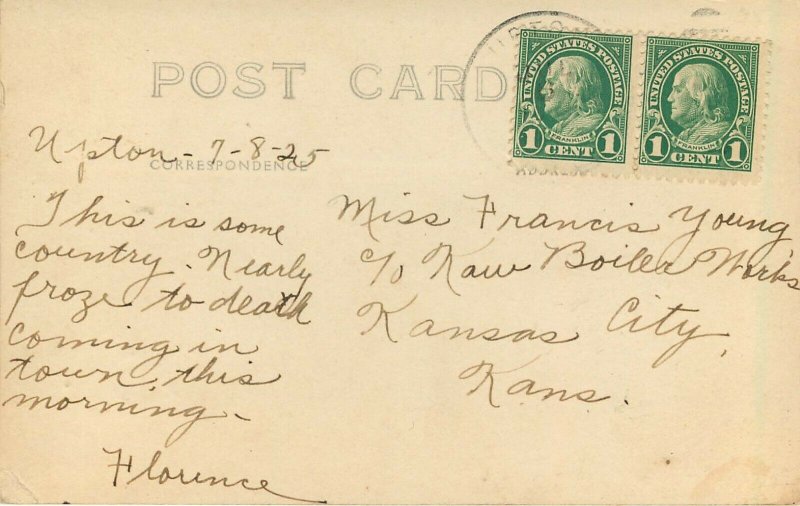 POST CARD
UNITED STATES POSTAGE
FRANKLIN
1 CENT 1
UNITED STATES POSTAGE
FRANKLIN
1 CENT 1
Upton - 7-8-25
CORRESPONDENCE
This is some
country. Nearly
froze to death
coming in
town, this
morning -
Florence
Miss Francis Young
c/o Kaw Boiler Works
Kansas City,
Kans.